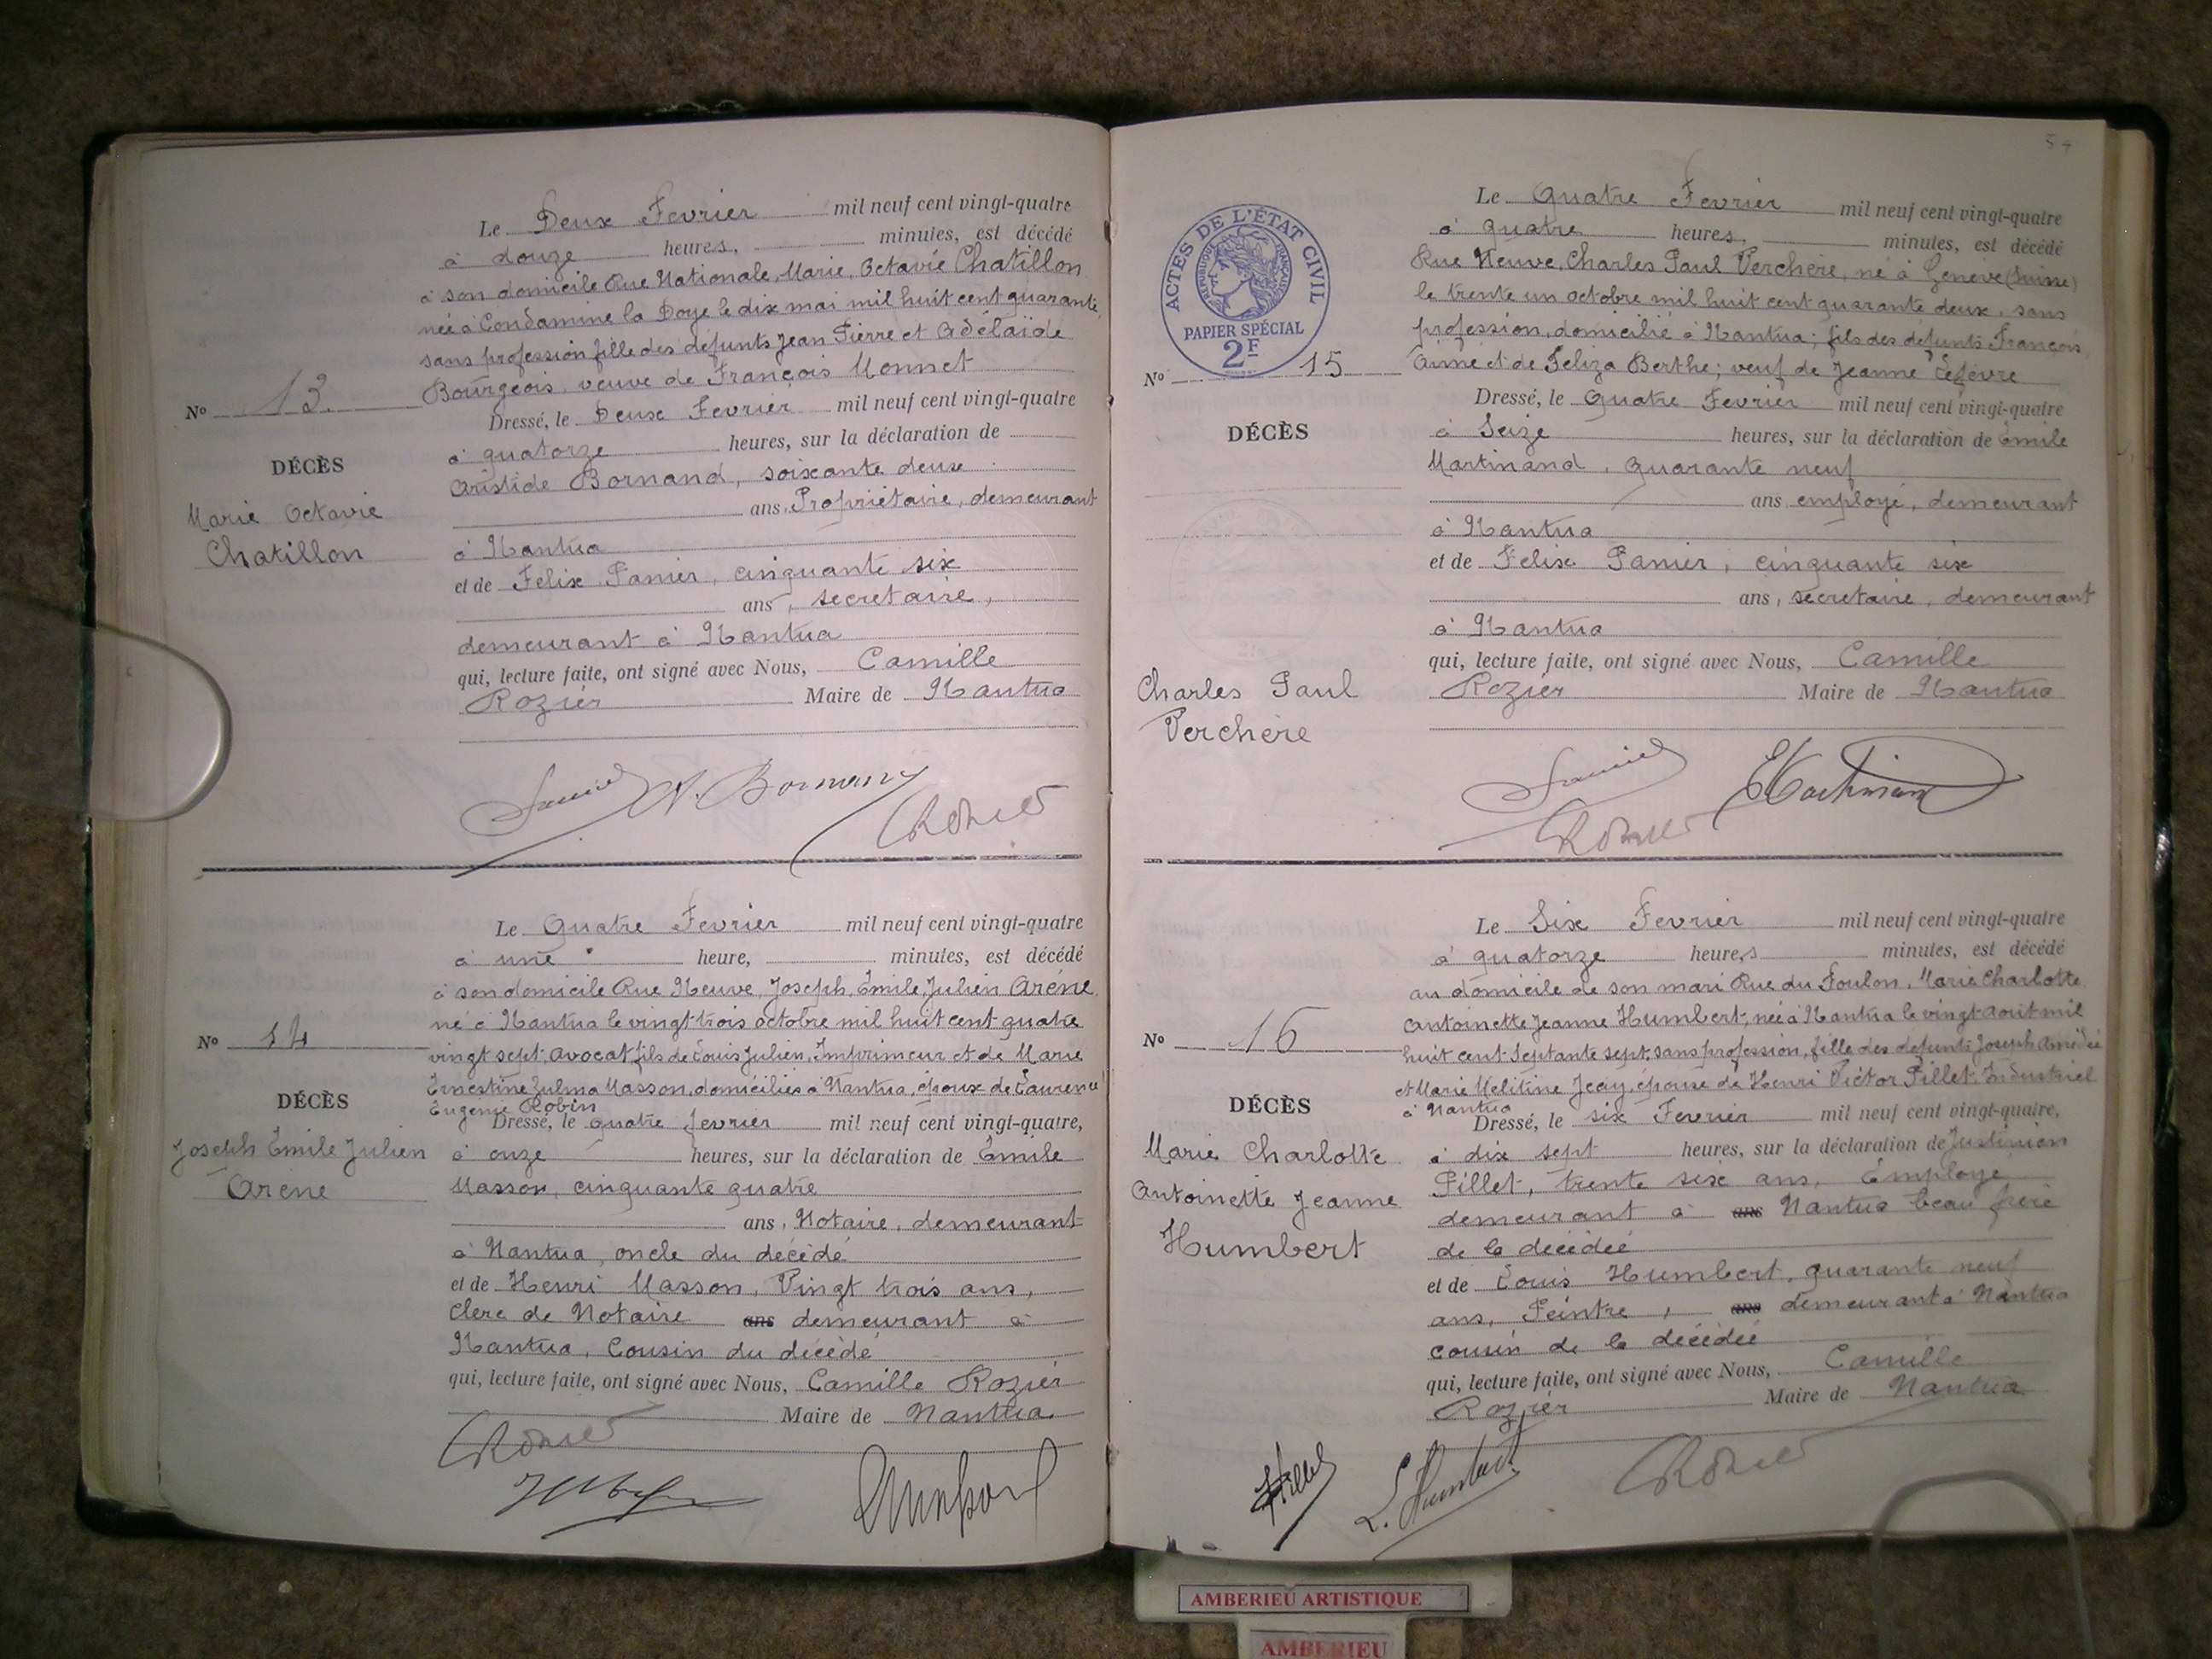 Le Deux Fevrier mil neuf cent vingt-quatre
à douze heures, minutes, est décédé
à son domicile Rue Nationale, Marie, Octavie Chatillon
née à Condamine la Doye le dix mai mil huit cent quarante,
sans profession fille des defunts Jean Pierre et Adélaïde
Bourgeois, veuve de François Monnet
No 13.
Dressé, le Deux Fevrier mil neuf cent vingt-quatre
à quatorze heures, sur la déclaration de
DÉCÈS
Aristide Bornand, soixante deux
ans, Propriétaire, demeurant
Marie Octavie
Chatillon
à Nantua
et de Felix Panier, cinquante six
ans, secretaire,
demeurant à Nantua
qui, lecture faite, ont signé avec Nous, Camille
Rozier Maire de Nantua
Le Quatre Fevrier mil neuf cent vingt-quatre
à une heure, minutes, est décédé
à son domicile Rue Neuve, Joseph, Émile, Julien Arène
né à Nantua le vingt trois octobre mil huit cent quatre
No 14
vingt sept, avocat, fils de Louis Julien, Imprimeur et de Marie
Ernestine Zulma Masson, domiciliés à Nantua, époux de Laurence
Eugenie Robin
DÉCÈS
Dressé, le quatre fevrier mil neuf cent vingt-quatre,
Joseph Émile Julien
Arène
à onze heures, sur la déclaration de Émile
Masson, cinquante quatre
ans, Notaire, demeurant
à Nantua, oncle du décédé
et de Henri Masson, Vingt trois ans,
Clerc de Notaire ans demeurant à
Nantua, Cousin du décédé
qui, lecture faite, ont signé avec Nous, Camille Rozier
Maire de Nantua
ACTES DE L'ÉTAT CIVIL
RÉPUBLIQUE FRANÇAISE
PAPIER SPÉCIAL
2F
Le Quatre Fevrier mil neuf cent vingt-quatre
à quatre heures, minutes, est décédé
Rue Neuve, Charles Paul Verchère, né à Genève (Suisse)
le trente un octobre mil huit cent quarante deux, sans
profession, domicilié à Nantua; fils des defunts François
Aimé et de Feliza Berthe; veuf de Jeanne Lefèvre
No 15
Dressé, le Quatre Fevrier mil neuf cent vingt-quatre
DÉCÈS
à Seize heures, sur la déclaration de Émile
Martinand, quarante neuf
ans employé, demeurant
à Nantua
et de Felix Panier, cinquante six
ans, secretaire, demeurant
à Nantua
qui, lecture faite, ont signé avec Nous, Camille
Charles Paul
Verchère
Rozier Maire de Nantua
Le Six Fevrier mil neuf cent vingt-quatre
à quatorze heures minutes, est décédé
au domicile de son mari Rue du Foulon, Marie Charlotte
Antoinette Jeanne Humbert, née à Nantua le vingt aout mil
No 16
huit cent Septante sept, sans profession, fille des defunts Joseph Amédée
et Marie Melitine Jeay, épouse de Henri Victor Pillet, Industriel
à Nantua
DÉCÈS
Dressé, le six Fevrier mil neuf cent vingt-quatre,
à dix sept heures, sur la déclaration de Justinien
Marie Charlotte
Antoinette Jeanne
Humbert
Pillet, trente six ans, Employé
demeurant à ans Nantua beau frère
de la décédée
et de Louis Humbert, quarante neuf
ans, Peintre, ans demeurant à Nantua
cousin de la décédée
qui, lecture faite, ont signé avec Nous, Camille
Rozier Maire de Nantua
L. Humbert
AMBERIEU ARTISTIQUE
AMBERIEU